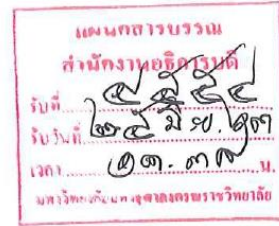 แผนกสารบรรณ
สำนักงานอธิการบดี
รับที่
รับวันที่ ๒๕ มิ.ย. ๖๓
เวลา ๑๓.๓๗ น.
มหาวิทยาลัยมหาจุฬาลงกรณราชวิทยาลัย